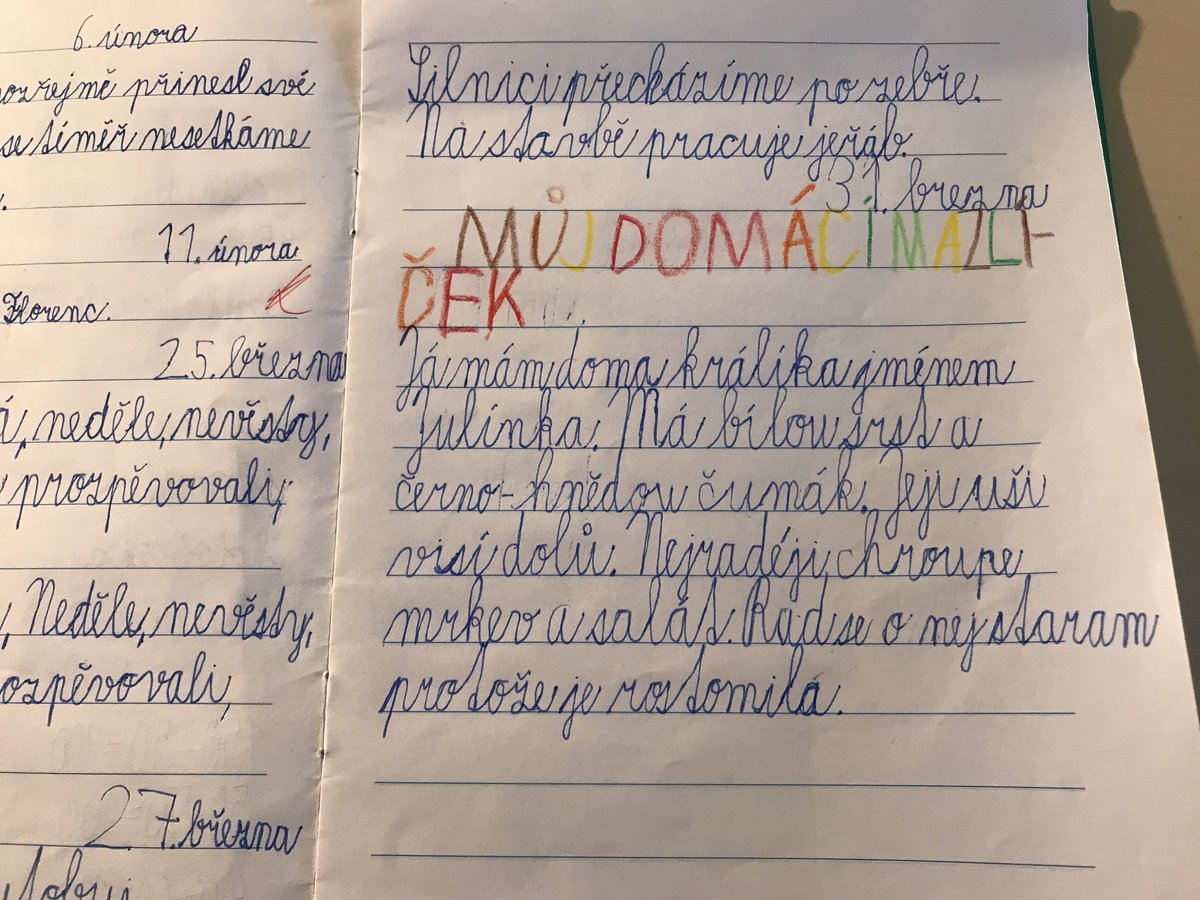 6. února
ozřejmě přinesl své
se téměř nesetkáme
11. února
Florenc.
25. března
á, neděle, nevěsty,
prozpěvovali,
, Neděle, nevěsty,
ozpěvovali,
27. března
Silnici předcházíme po zebře.
Na stavbě pracuje jeřáb.
31. března
MŮJ DOMÁCÍ MAZLI-
ČEK
Já mám doma králíka jménem
Julinka. Má bílou srst a
černo-hnědou čumák. Jeji uši
visí dolů. Nejraději chroupe
mrkev a salát. Rad se o nej staram
protože je rostomilá.